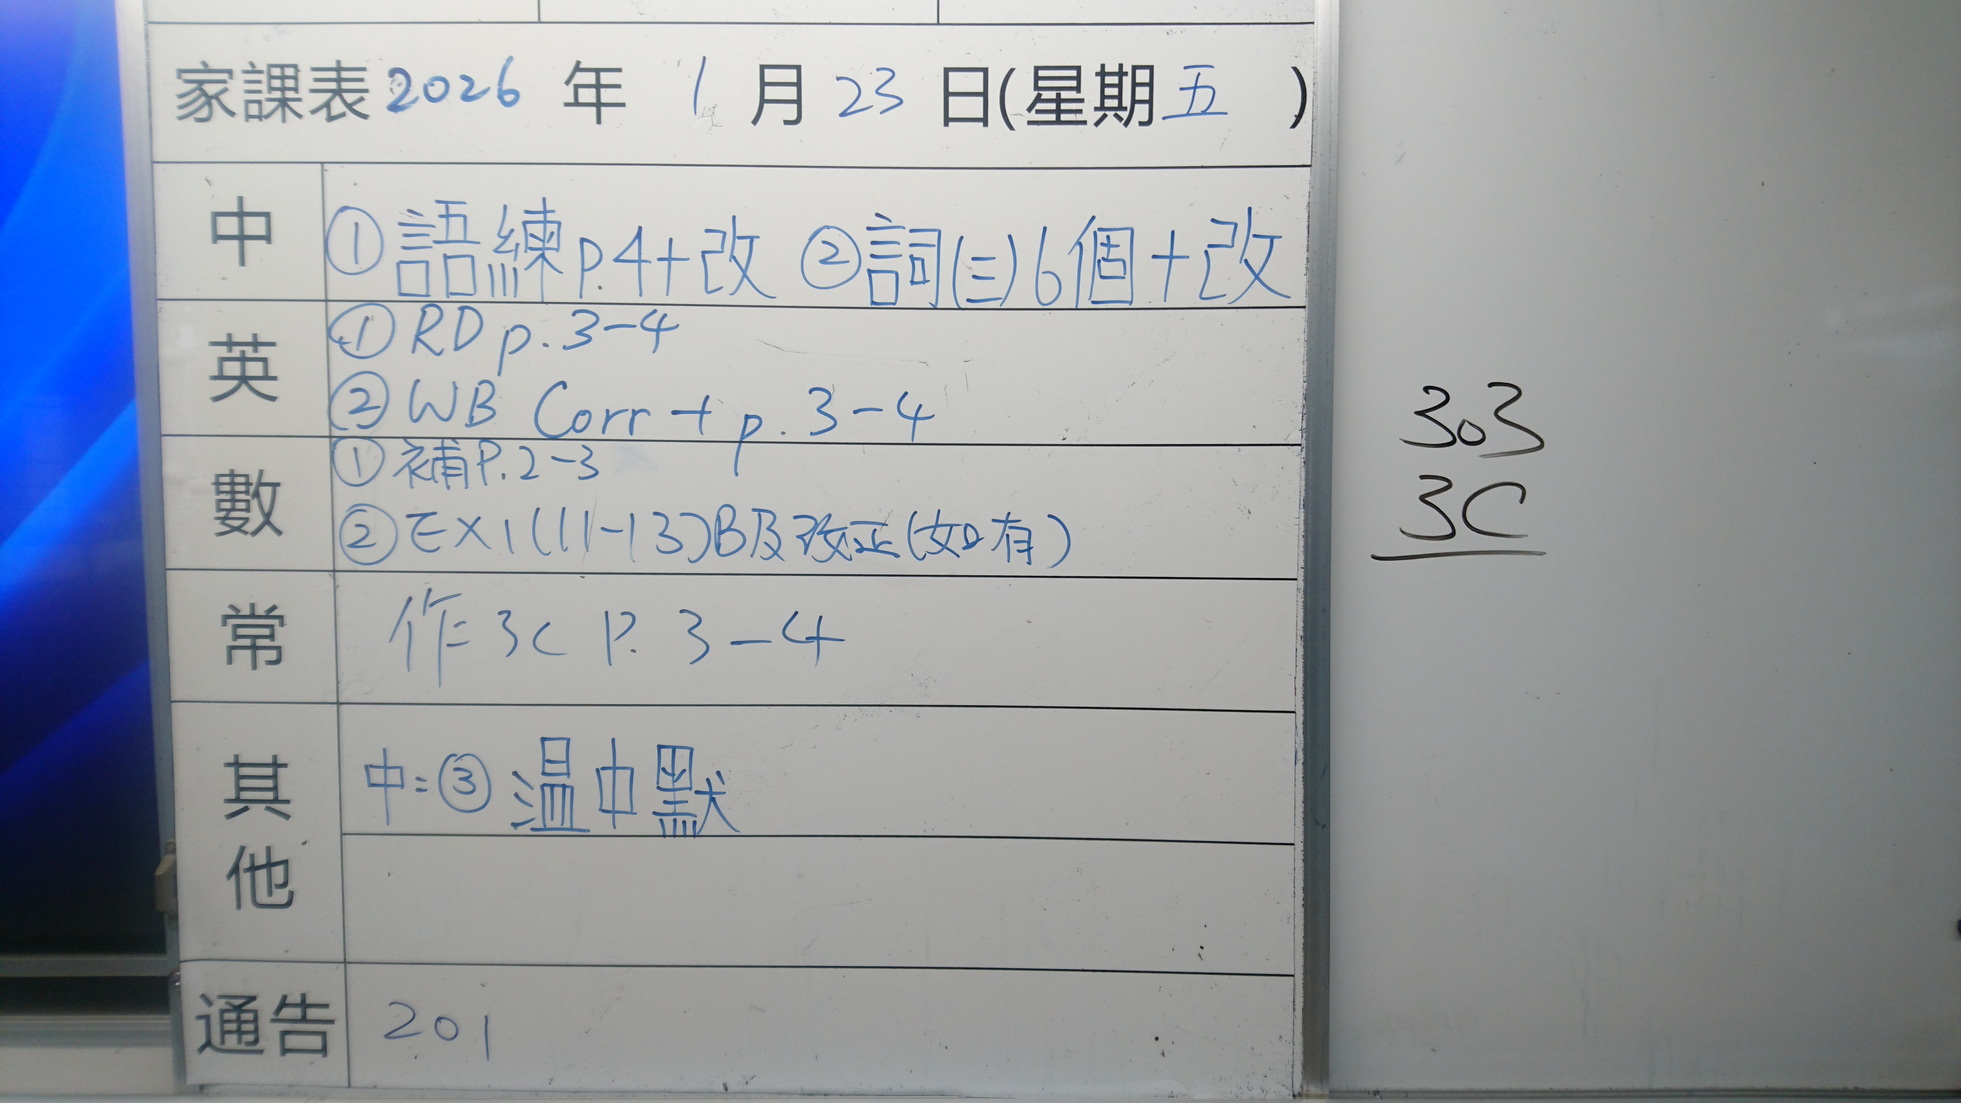 家課表2026年1月23日(星期五)
中 ①語練p.4+改 ②詞(三)6個+改
英 ①RD p.3-4
②WB Corr + p.3-4
數 ①補P.2-3
②EX1(11-13)B及改正(如有)
常 作3C P.3-4
其他 中:③温中默
通告 201
303
3C